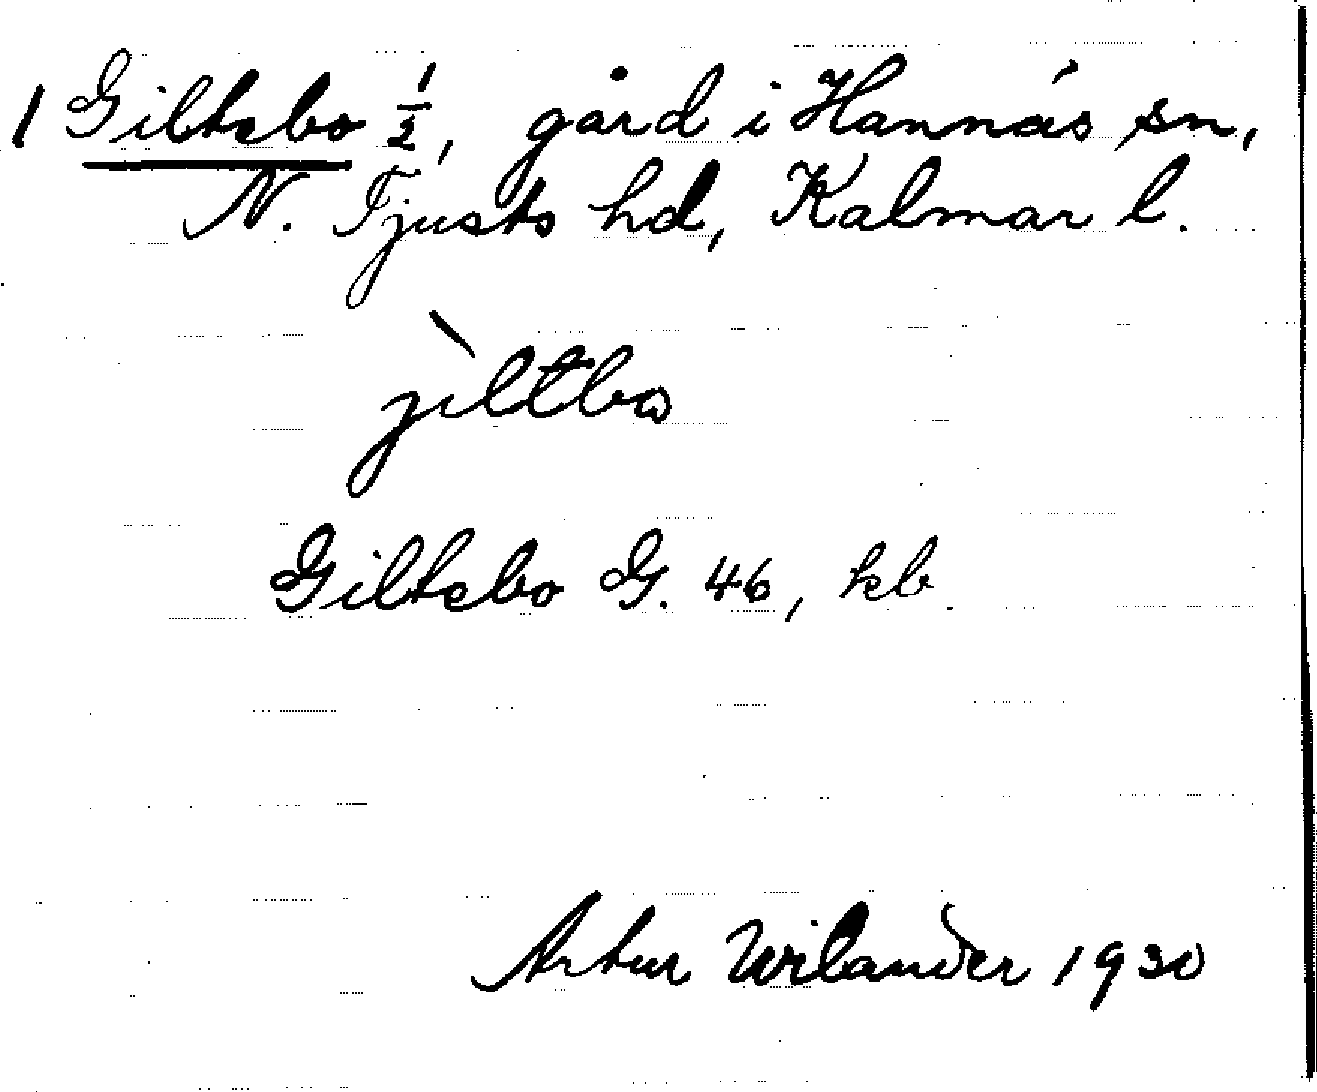 1 Giltsbo 1/2, gård i Hannäs sn,
N. Tjusts hd, Kalmar l.
jìltbω
Giltsbo G. 46, kb
Artur Wilander 1930